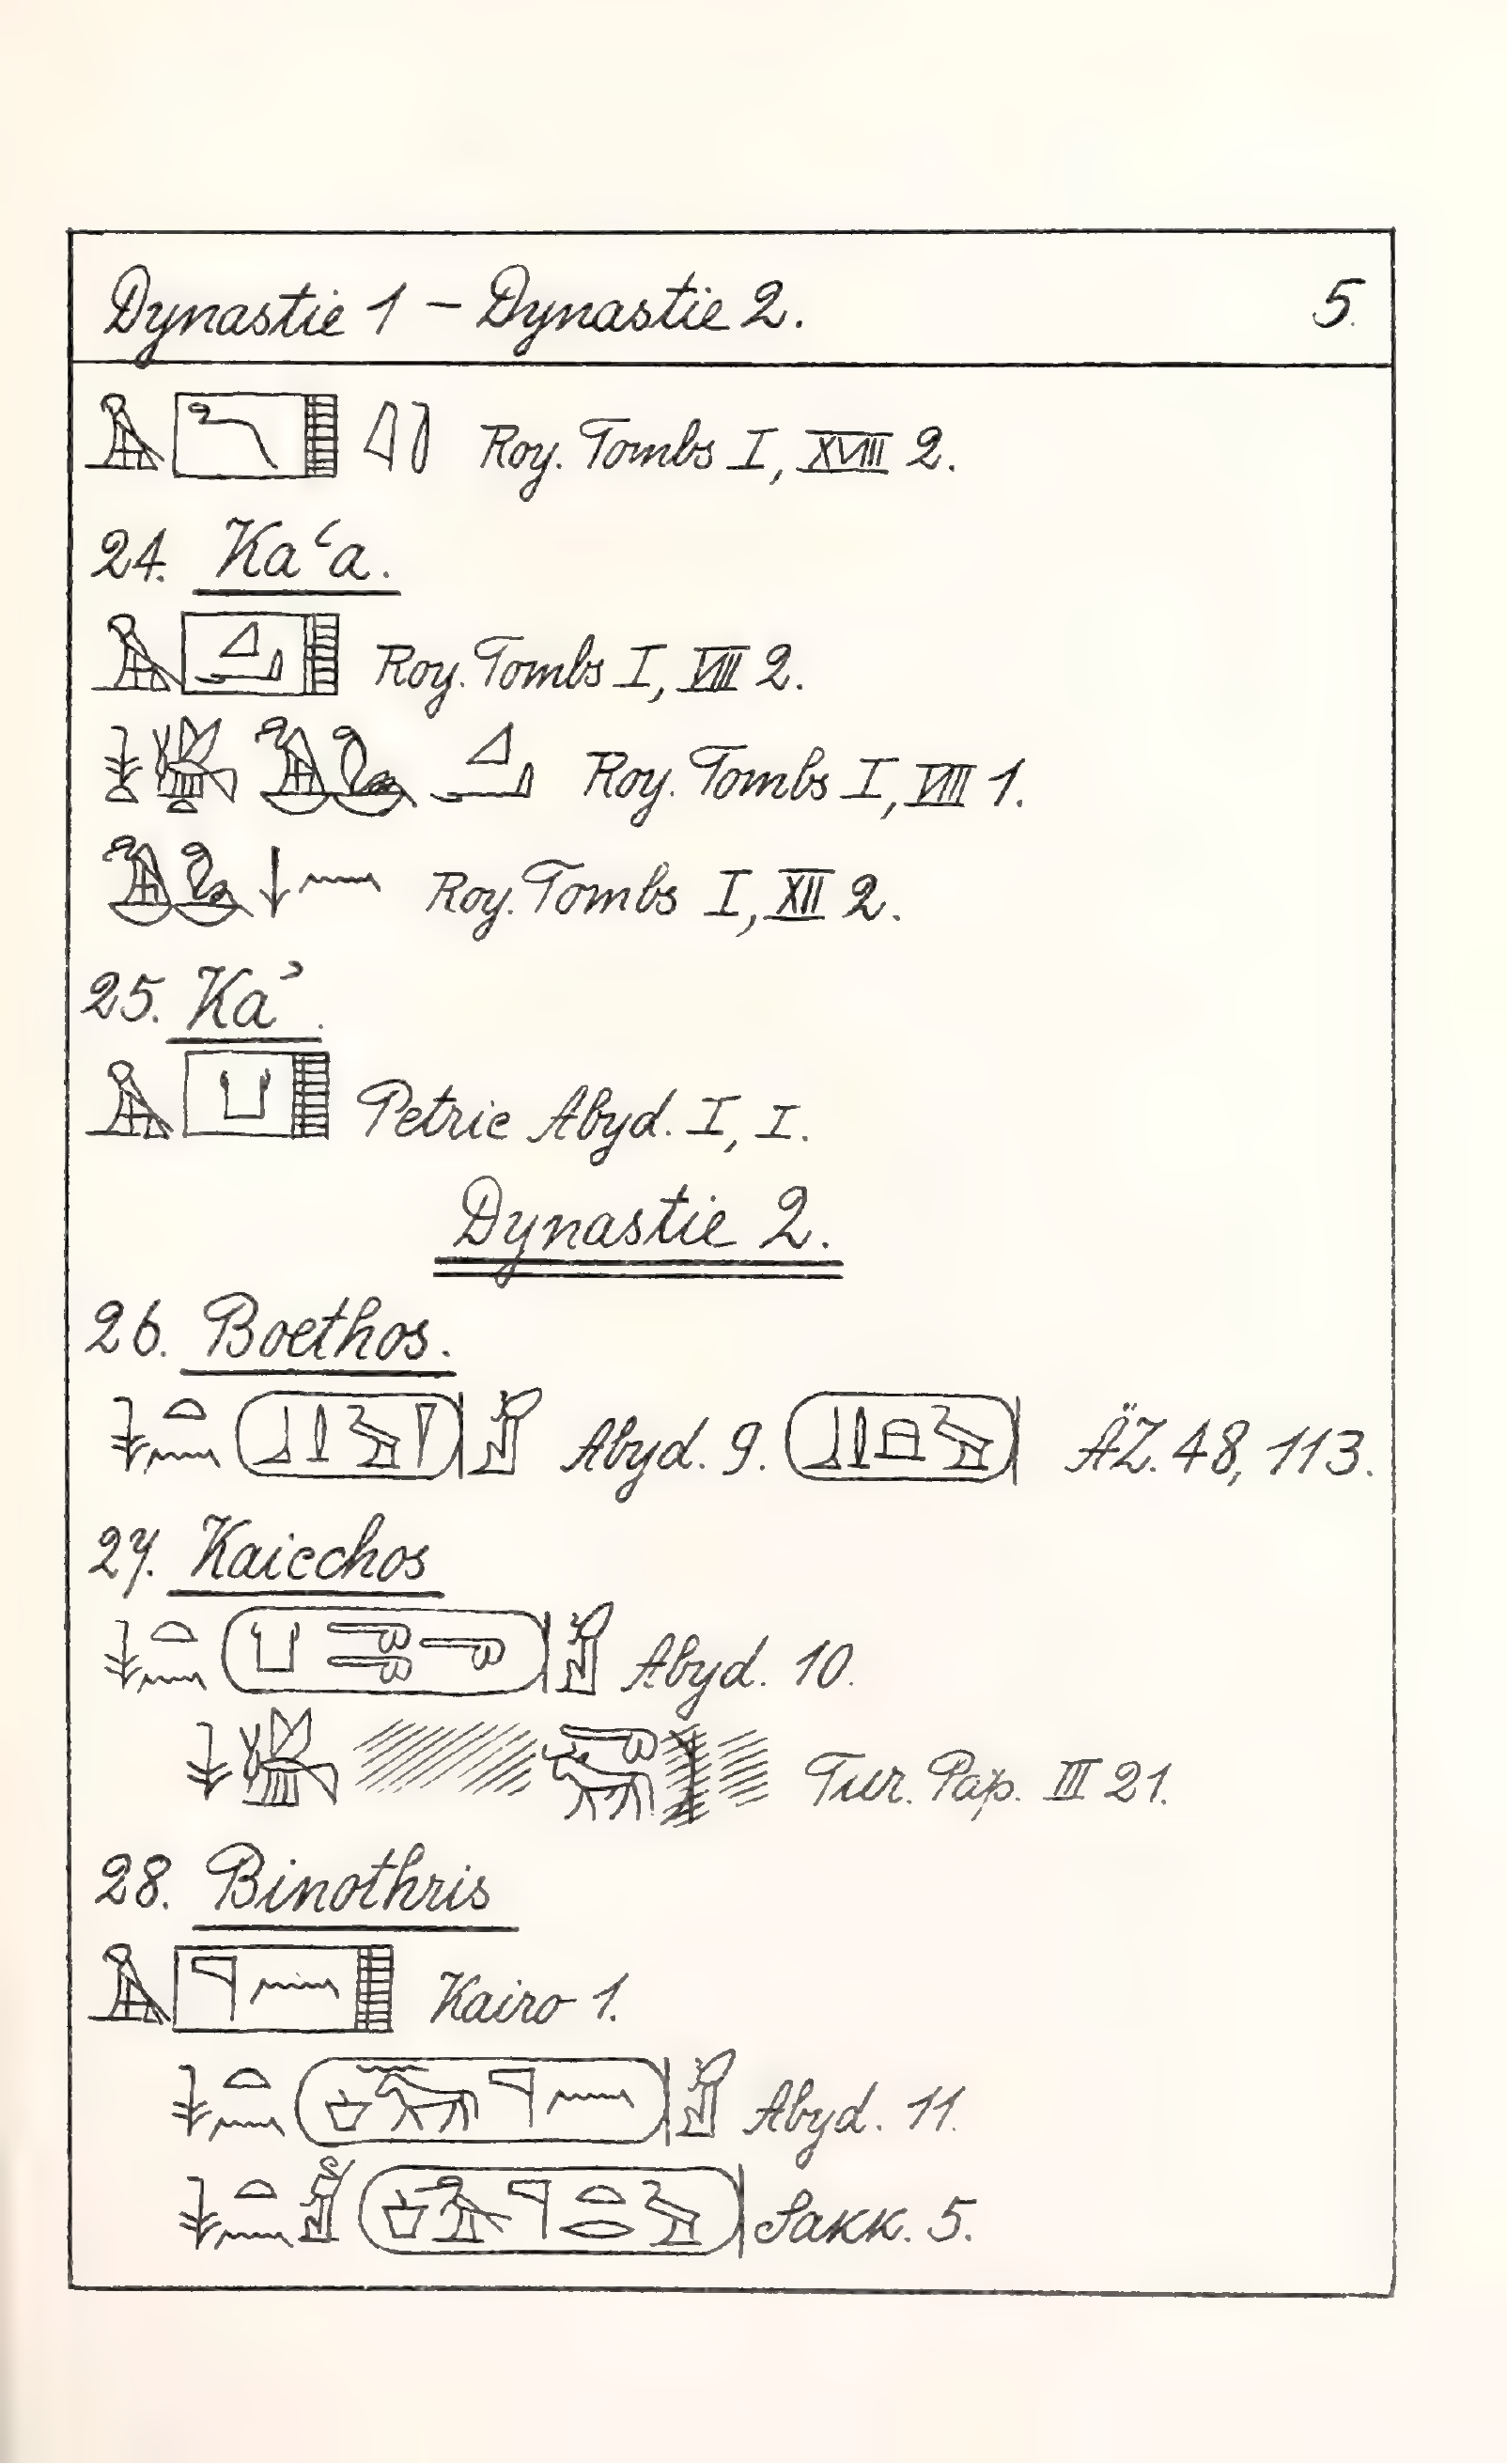 Dynastie 1 – Dynastie 2. 5.
Roy. Tombs I, XVIII 2.
24. Kaʿa.
Roy. Tombs I, VIII 2.
Roy. Tombs I, VIII 1.
Roy. Tombs I, XII 2.
25. Kaʾ.
Petrie Abyd. I, I.
Dynastie 2.
26. Boethos.
Abyd. 9. ÄZ. 48, 113.
27. Kaiechos
Abyd. 10.
Tur. Pap. III 21.
28. Binothris
Kairo 1.
Abyd. 11.
Sakk. 5.